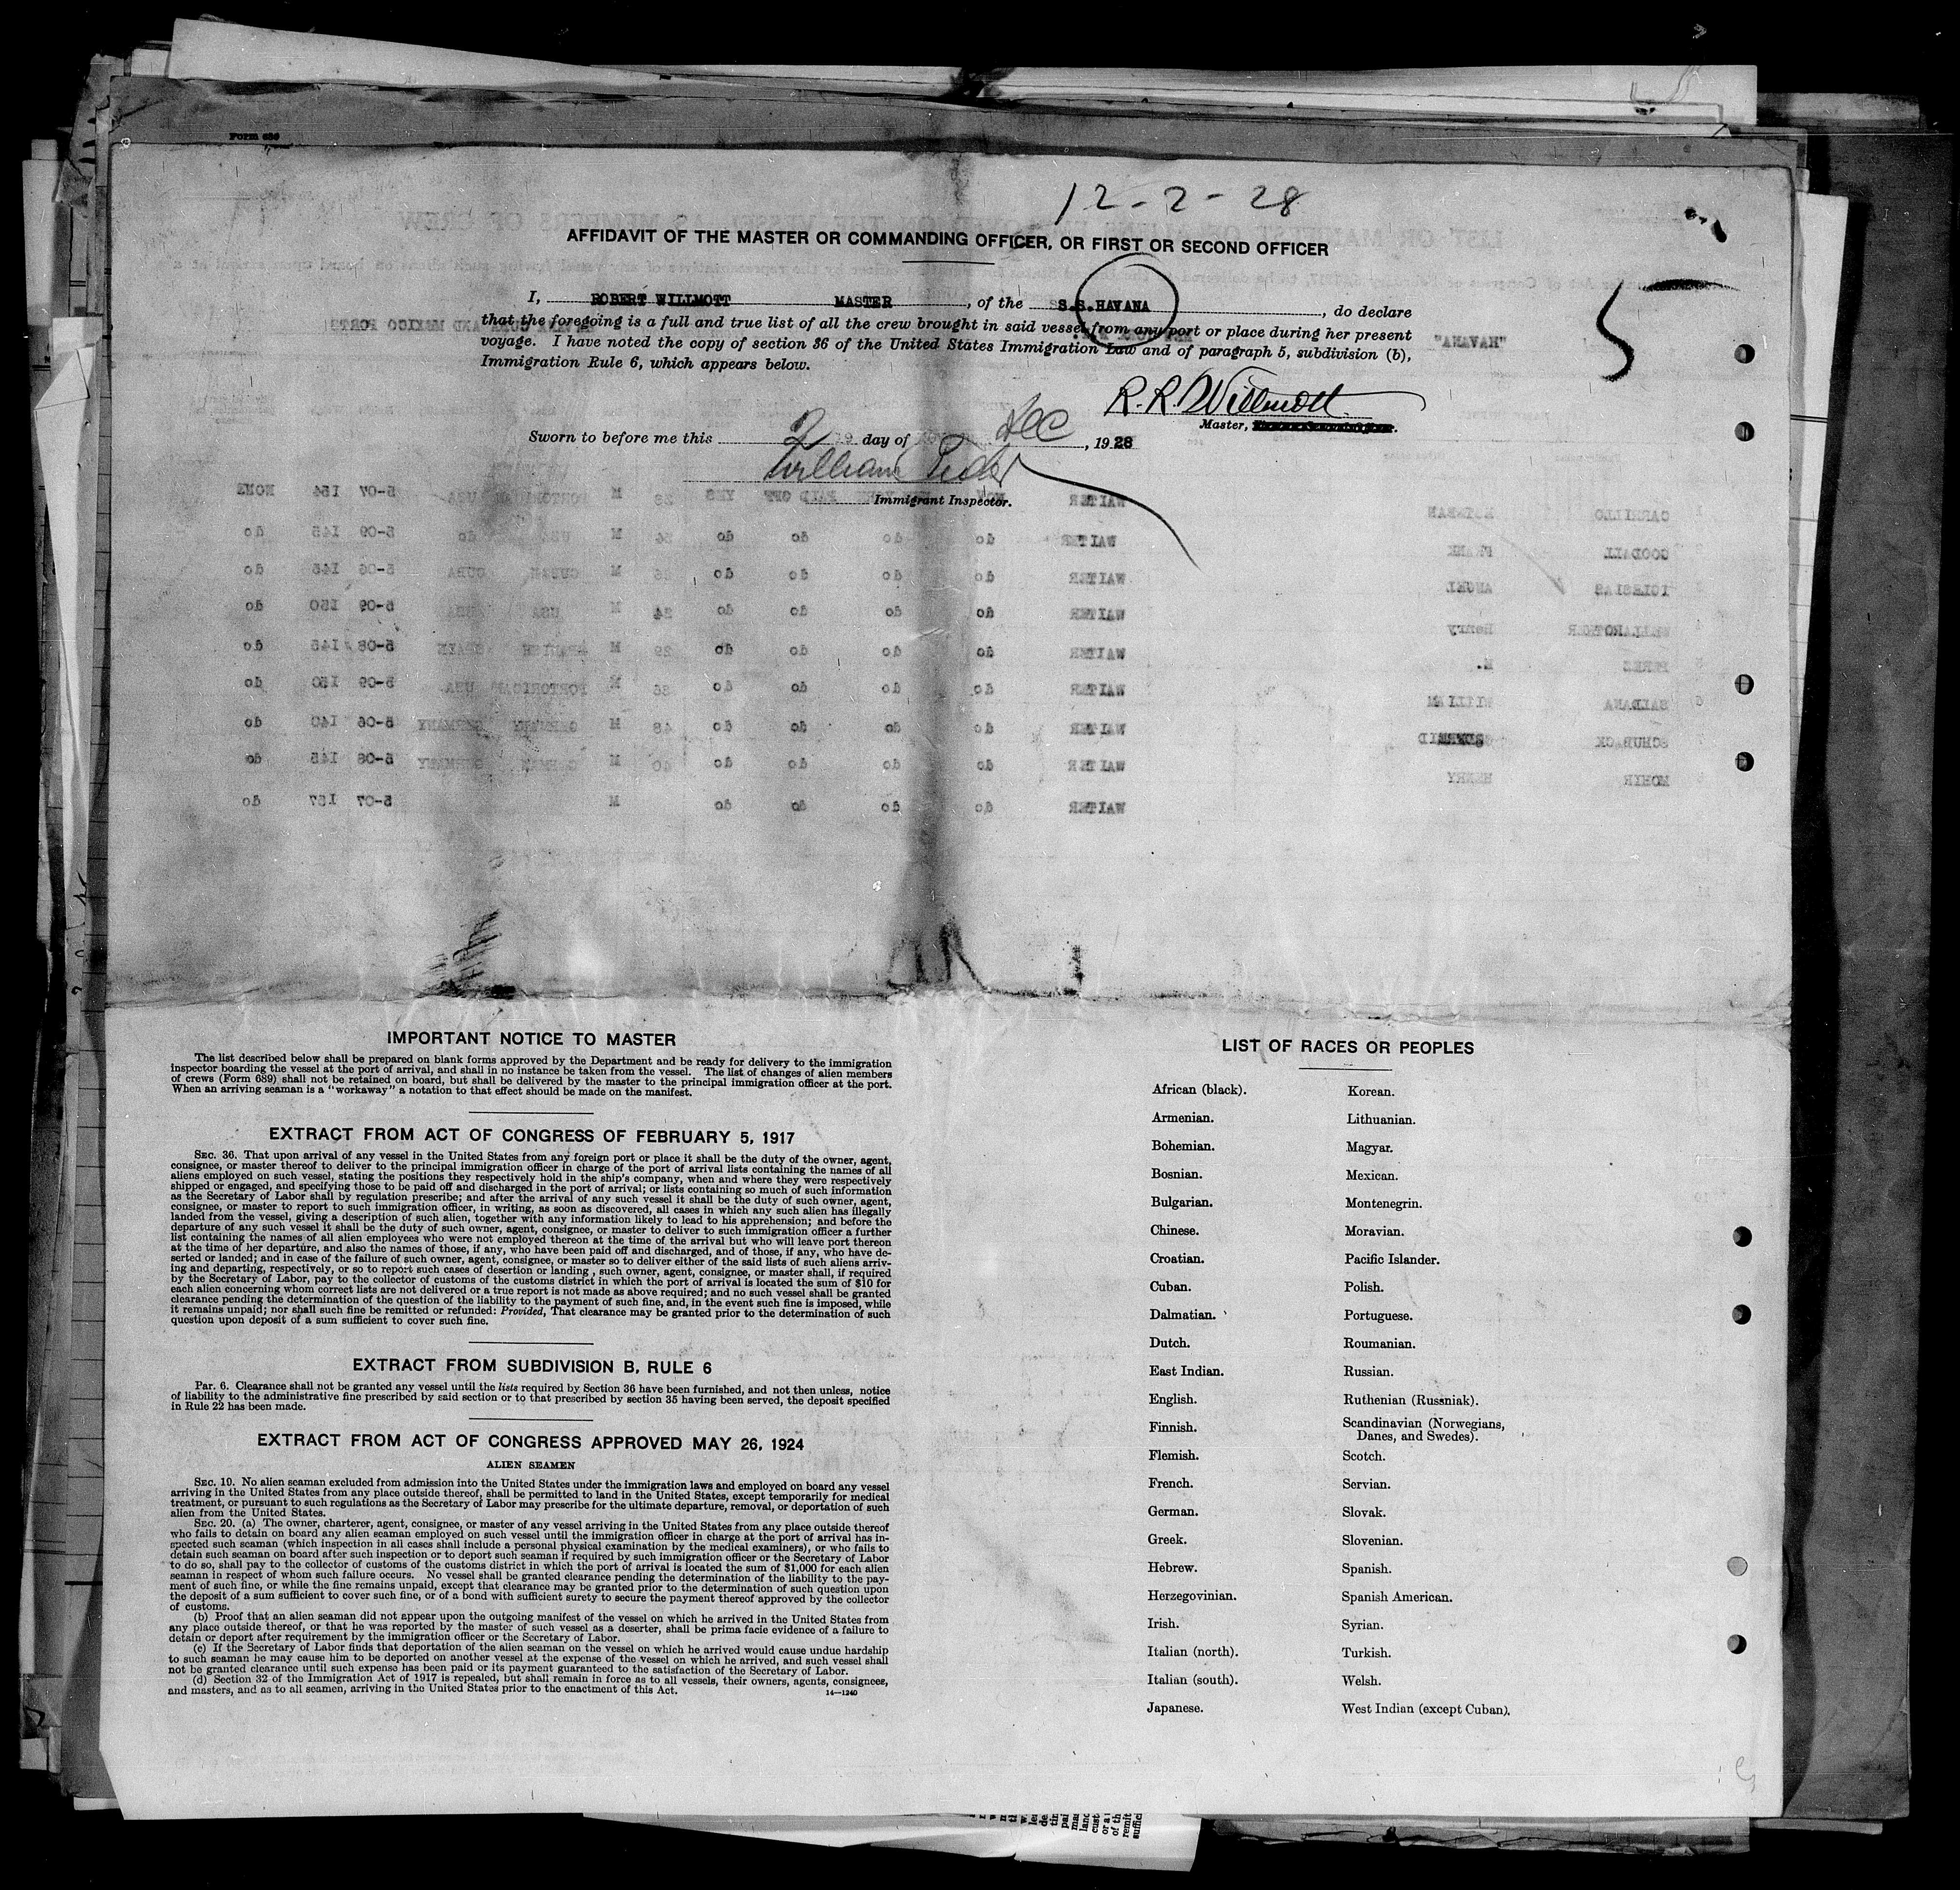 Form 689
12-2-28
AFFIDAVIT OF THE MASTER OR COMMANDING OFFICER, OR FIRST OR SECOND OFFICER
5
I, ROBERT WILLMOTT MASTER, of the S.S. HAVANA, do declare
that the foregoing is a full and true list of all the crew brought in said vessel from any port or place during her present
voyage. I have noted the copy of section 36 of the United States Immigration Law and of paragraph 5, subdivision (b),
Immigration Rule 6, which appears below.
R. R. Willmott
Master,
Sworn to before me this 2 day of Dec, 1928
William
Immigrant Inspector.
IMPORTANT NOTICE TO MASTER
The list described below shall be prepared on blank forms approved by the Department and be ready for delivery to the immigration
inspector boarding the vessel at the port of arrival, and shall in no instance be taken from the vessel. The list of changes of alien members
of crews (Form 689) shall not be retained on board, but shall be delivered by the master to the principal immigration officer at the port.
When an arriving seaman is a "workaway" a notation to that effect should be made on the manifest.
EXTRACT FROM ACT OF CONGRESS OF FEBRUARY 5, 1917
SEC. 36. That upon arrival of any vessel in the United States from any foreign port or place it shall be the duty of the owner, agent,
consignee, or master thereof to deliver to the principal immigration officer in charge of the port of arrival lists containing the names of all
aliens employed on such vessel, stating the positions they respectively hold in the ship's company, when and where they were respectively
shipped or engaged, and specifying those to be paid off and discharged in the port of arrival; or lists containing so much of such information
as the Secretary of Labor shall by regulation prescribe; and after the arrival of any such vessel it shall be the duty of such owner, agent,
consignee, or master to report to such immigration officer, in writing, as soon as discovered, all cases in which any such alien has illegally
landed from the vessel, giving a description of such alien, together with any information likely to lead to his apprehension; and before the
departure of any such vessel it shall be the duty of such owner, agent, consignee, or master to deliver to such immigration officer a further
list containing the names of all alien employees who were not employed thereon at the time of the arrival but who will leave port thereon
at the time of her departure, and also the names of those, if any, who have been paid off and discharged, and of those, if any, who have de-
serted or landed; and in case of the failure of such owner, agent, consignee, or master so to deliver either of the said lists of such aliens arriv-
ing and departing, respectively, or so to report such cases of desertion or landing, such owner, agent, consignee, or master shall, if required
by the Secretary of Labor, pay to the collector of customs of the customs district in which the port of arrival is located the sum of $10 for
each alien concerning whom correct lists are not delivered or a true report is not made as above required; and no such vessel shall be granted
clearance pending the determination of the question of the liability to the payment of such fine, and, in the event such fine is imposed, while
it remains unpaid; nor shall such fine be remitted or refunded: Provided, That clearance may be granted prior to the determination of such
question upon deposit of a sum sufficient to cover such fine.
EXTRACT FROM SUBDIVISION B, RULE 6
Par. 6. Clearance shall not be granted any vessel until the lists required by Section 36 have been furnished, and not then unless, notice
of liability to the administrative fine prescribed by said section or to that prescribed by section 35 having been served, the deposit specified
in Rule 22 has been made.
EXTRACT FROM ACT OF CONGRESS APPROVED MAY 26, 1924
ALIEN SEAMEN
SEC. 19. No alien seaman excluded from admission into the United States under the immigration laws and employed on board any vessel
arriving in the United States from any place outside thereof, shall be permitted to land in the United States, except temporarily for medical
treatment, or pursuant to such regulations as the Secretary of Labor may prescribe for the ultimate departure, removal, or deportation of such
alien from the United States.
SEC. 20. (a) The owner, charterer, agent, consignee, or master of any vessel arriving in the United States from any place outside thereof
who fails to detain on board any alien seaman employed on such vessel until the immigration officer in charge at the port of arrival has in-
spected such seaman (which inspection in all cases shall include a personal physical examination by the medical examiners), or who fails to
detain such seaman on board after such inspection or to deport such seaman if required by such immigration officer or the Secretary of Labor
to do so, shall pay to the collector of customs of the customs district in which the port of arrival is located the sum of $1,000 for each alien
seaman in respect of whom such failure occurs. No vessel shall be granted clearance pending the determination of the liability to the pay-
ment of such fine, or while the fine remains unpaid, except that clearance may be granted prior to the determination of such question upon
the deposit of a sum sufficient to cover such fine, or of a bond with sufficient surety to secure the payment thereof approved by the collector
of customs.
(b) Proof that an alien seaman did not appear upon the outgoing manifest of the vessel on which he arrived in the United States from
any place outside thereof, or that he was reported by the master of such vessel as a deserter, shall be prima facie evidence of a failure to
detain or deport after requirement by the immigration officer or the Secretary of Labor.
(c) If the Secretary of Labor finds that deportation of the alien seaman on the vessel on which he arrived would cause undue hardship
to such seaman he may cause him to be deported on another vessel at the expense of the vessel on which he arrived, and such vessel shall
not be granted clearance until such expense has been paid or its payment guaranteed to the satisfaction of the Secretary of Labor.
(d) Section 32 of the Immigration Act of 1917 is repealed, but shall remain in force as to all vessels, their owners, agents, consignees,
and masters, and as to all seamen, arriving in the United States prior to the enactment of this Act.
14—1240
LIST OF RACES OR PEOPLES
African (black). Korean.
Armenian. Lithuanian.
Bohemian. Magyar.
Bosnian. Mexican.
Bulgarian. Montenegrin.
Chinese. Moravian.
Croatian. Pacific Islander.
Cuban. Polish.
Dalmatian. Portuguese.
Dutch. Roumanian.
East Indian. Russian.
English. Ruthenian (Russniak).
Finnish. Scandinavian (Norwegians,
Danes, and Swedes).
Flemish. Scotch.
French. Servian.
German. Slovak.
Greek. Slovenian.
Hebrew. Spanish.
Herzegovinian. Spanish American.
Irish. Syrian.
Italian (north). Turkish.
Italian (south). Welsh.
Japanese. West Indian (except Cuban).